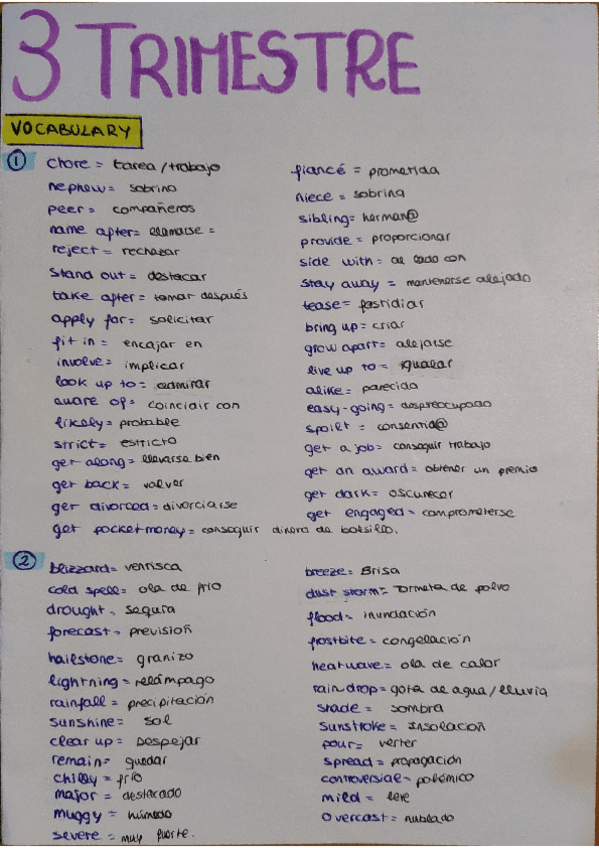 3 TRIMESTRE
VOCABULARY
1
chore = tarea / trabajo
nephew = sobrino
peer = compañeros
name after = llamarse =
reject = rechazar
stand out = destacar
take after = tomar después
apply for = solicitar
fit in = encajar en
involve = implicar
look up to = admirar
aware of = coincidir con
likely = probable
strict = estricto
get along = llevarse bien
get back = volver
get divorced = divorciarse
get pocket money = conseguir dinero de bolsillo.
fiancé = prometida
niece = sobrina
sibling = herman@
provide = proporcionar
side with = al lado con
stay away = mantenerse alejado
tease = fastidiar
bring up = criar
grow apart = alejarse
live up to = igualar
alike = parecido
easy-going = despreocupado
spoilt = consentid@
get a job = conseguir trabajo
get an award = obtener un premio
get dark = oscurecer
get engaged = comprometerse
2
blizzard = ventisca
cold spell = ola de frío
drought = sequra
forecast = previsión
hailstone = granizo
lightning = relámpago
rainfall = precipitación
sunshine = sol
clear up = Despejar
remain = quedar
chilly = frío
major = destacado
muggy = húmedo
severe = muy fuerte.
breeze = Brisa
dust storm = Tormeta de polvo
flood = inundación
frostbite = congelación
heatwave = ola de calor
raindrop = gota de agua / lluvia
shade = sombra
sunstroke = Insolación
pour = verter
spread = propagación
controversial = polémico
mild = leve
overcast = nublado